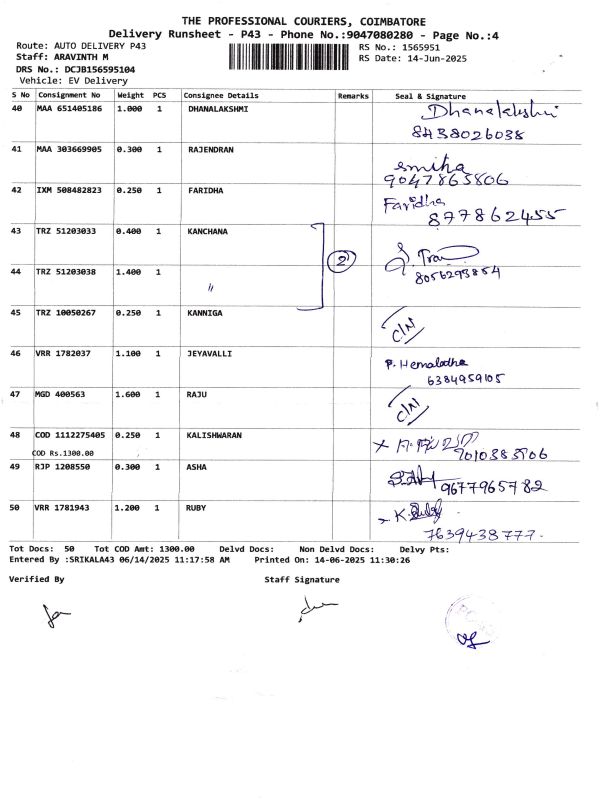 THE PROFESSIONAL COURIERS, COIMBATORE
Delivery Runsheet - P43 - Phone No.:9047080280 - Page No.:4
Route: AUTO DELIVERY P43
Staff: ARAVINTH M
DRS No.: DCJB156595104
Vehicle: EV Delivery
RS No.: 1565951
RS Date: 14-Jun-2025
S No Consignment No Weight PCS Consignee Details Remarks Seal & Signature
40 MAA 651405186 1.000 1 DHANALAKSHMI Dhanalakshmi
8438026038
41 MAA 303669905 0.300 1 RAJENDRAN smika
9047865806
42 IXM 508482823 0.250 1 FARIDHA Faridha
877862455
43 TRZ 51203033 0.400 1 KANCHANA
2
44 TRZ 51203038 1.400 1 〃 8056293854
45 TRZ 10050267 0.250 1 KANNIGA C/N
46 VRR 1782037 1.100 1 JEYAVALLI P. Hemalatha
6384959105
47 MGD 400563 1.600 1 RAJU C/N
48 COD 1112275405 0.250 1 KALISHWARAN
COD Rs.1300.00
49 RJP 1208550 0.300 1 ASHA 9677965782
50 VRR 1781943 1.200 1 RUBY K.
7639438777.
Tot Docs: 50 Tot COD Amt: 1300.00 Delvd Docs: Non Delvd Docs: Delvy Pts:
Entered By :SRIKALA43 06/14/2025 11:17:58 AM Printed On: 14-06-2025 11:30:26
Verified By Staff Signature